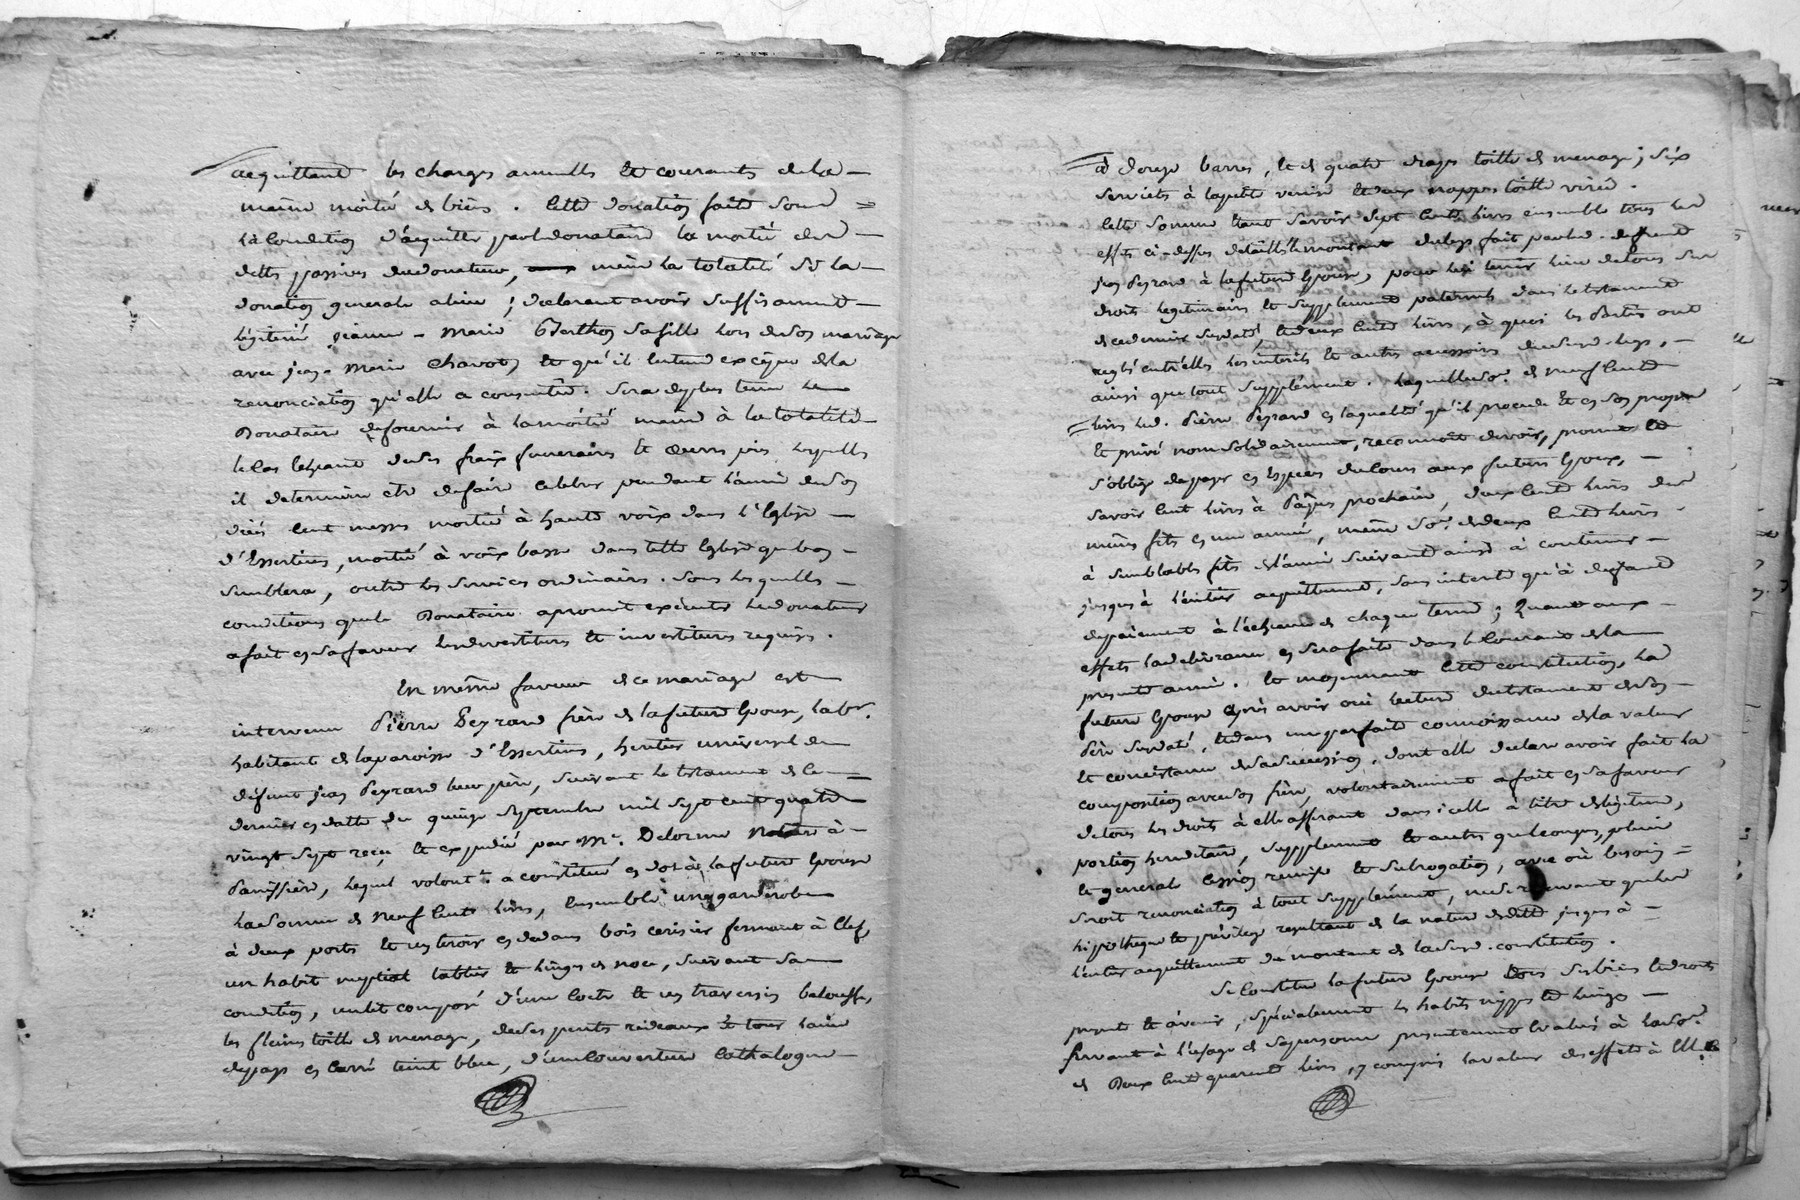 acquittant les charges annuelles et courantes de la
même moitié de biens. Cette donation faite sous
la condition d'acquitter par le donataire la moitié des
dettes passives du donateur, même la totalité si la
donation generale a lieu ; declarant avoir suffisament
légitimé Jeanne-Marie Berthon sa fille lors de son mariage
avec Jean-Marie Chavot et qu'il entend exciper de la
renonciation qu'elle a consentie. Sera de plus tenu le
Donataire de fournir à la moitié même à la totalité
le cas échéant de ses fraix funeraires et œuvres pies lesquelles
il determine etre de faire celebrer pendant l'année de son
décés cent messes moitié à haute voix dans l'Eglise
d'Essertines, moitié à voix basse dans telle Eglise que bon
semblera, outre les services ordinaires. Sous lesquelles
conditions que le Donataire a promit executer le donateur
a fait en sa faveur les devestitures et investitures requises.
En même faveur de ce mariage est
intervenu Pierre Peyrard frère de la future Epouse, labr.
habitant de la paroisse d'Essertines, heritier universel de
défunt Jean Peyrard leur père, suivant le testament de ce
dernier en datte du quinze septembre mil sept cent quatre
vingt sept reçu et expedié par Me. Delorme Notaire à
Panissière, lequel volont.t a constitué en dot à la future Epouse
la somme de neuf cents livres, ensemble une garderobe
à deux portes et un tiroir en dedans bois cerisier fermant à clef,
un habit nuptial tablier et linges de noce, suivant sa
condition, un lit composé d'une coetre et un traversin balouffe,
les fleines toille de menage, de ses pents rideaux et tour laine
du pays en carré teint bleu, d'une couverture Cathalogne
à douze barres, et de quatre draps toille de menage ; six
serviettes à la petite venise et deux nappes toille virée.
Cette somme tant savoir sept cents livres ensemble tous les
effets ci-dessus detaillés le montant du legs fait par led. defunt
Jean Peyrard à la future Epouse, pour lui tenir lieu de tous ses
droits legitimaires et supplement paternels dans le testament
de ce dernier susdaté, et deux cents livres, à quoi les Parties ont
reglé entr'elles les interêts et autres accessoires du susd. legs,
ainsi que tout supplément. Laquelle so.e de neuf cents
livres led. Pierre Peyrard en la qualité qu'il procede et en son propre
et privé nom solidairement, reconnoit devoir, promet et
s'oblige de payer en Especes du cours aux futurs Epoux,
savoir cent livres à Pâques prochain, deux cents livres des
mêmes fêtes en une année, même so.e de deux cents livres
à semblables fêtes de l'année suivante ainsi à continuer
jusques à l'entier acquittement, sans interêt qu'à defaut
de paiement à l'écheance de chaque terme ; Quant aux
effets la delivrance en sera faite dans le courant de la
presente année. Et moyennant cette constitution, la
future Epouse après avoir oui lecture du testament de son
Père susdaté, et dans une parfaite connoissance de la valeur
et consistance de sa succession, dont elle declare avoir fait la
composition avec son frère, volontairement a fait en sa faveur
de tous les droits à elle afferant dans icelle à titre de légitime,
portion hereditaire, supplement et autres quelconques, pleine
et generale cession remise et subrogation, avec où besoin
seroit renonciation à tout supplément, ne se reservant que les
hipotheque et privilege resultant de la nature de dette jusques à
l'entier acquittement du montant de la susd. constitution.
Se Constitue la future Epouse tous ses biens et droits
present et à venir, spécialement les habits nippes et linge
servant à l'usage de sa personne presentement évalués à la so.e
de Deux cents quarente livres, y compris la valeur des effets à Elle